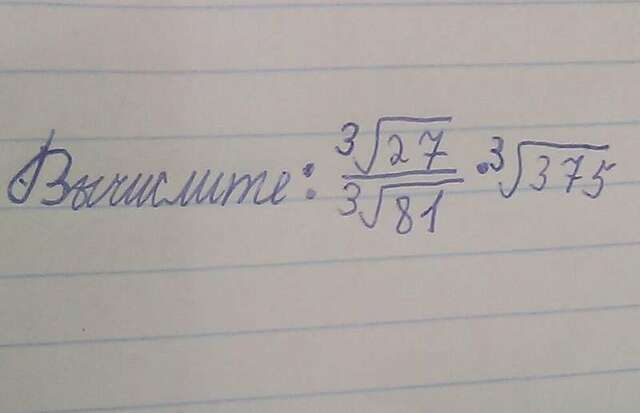 Вычислите: $\frac{\sqrt[3]{27}}{\sqrt[3]{81}} \cdot \sqrt[3]{375}$